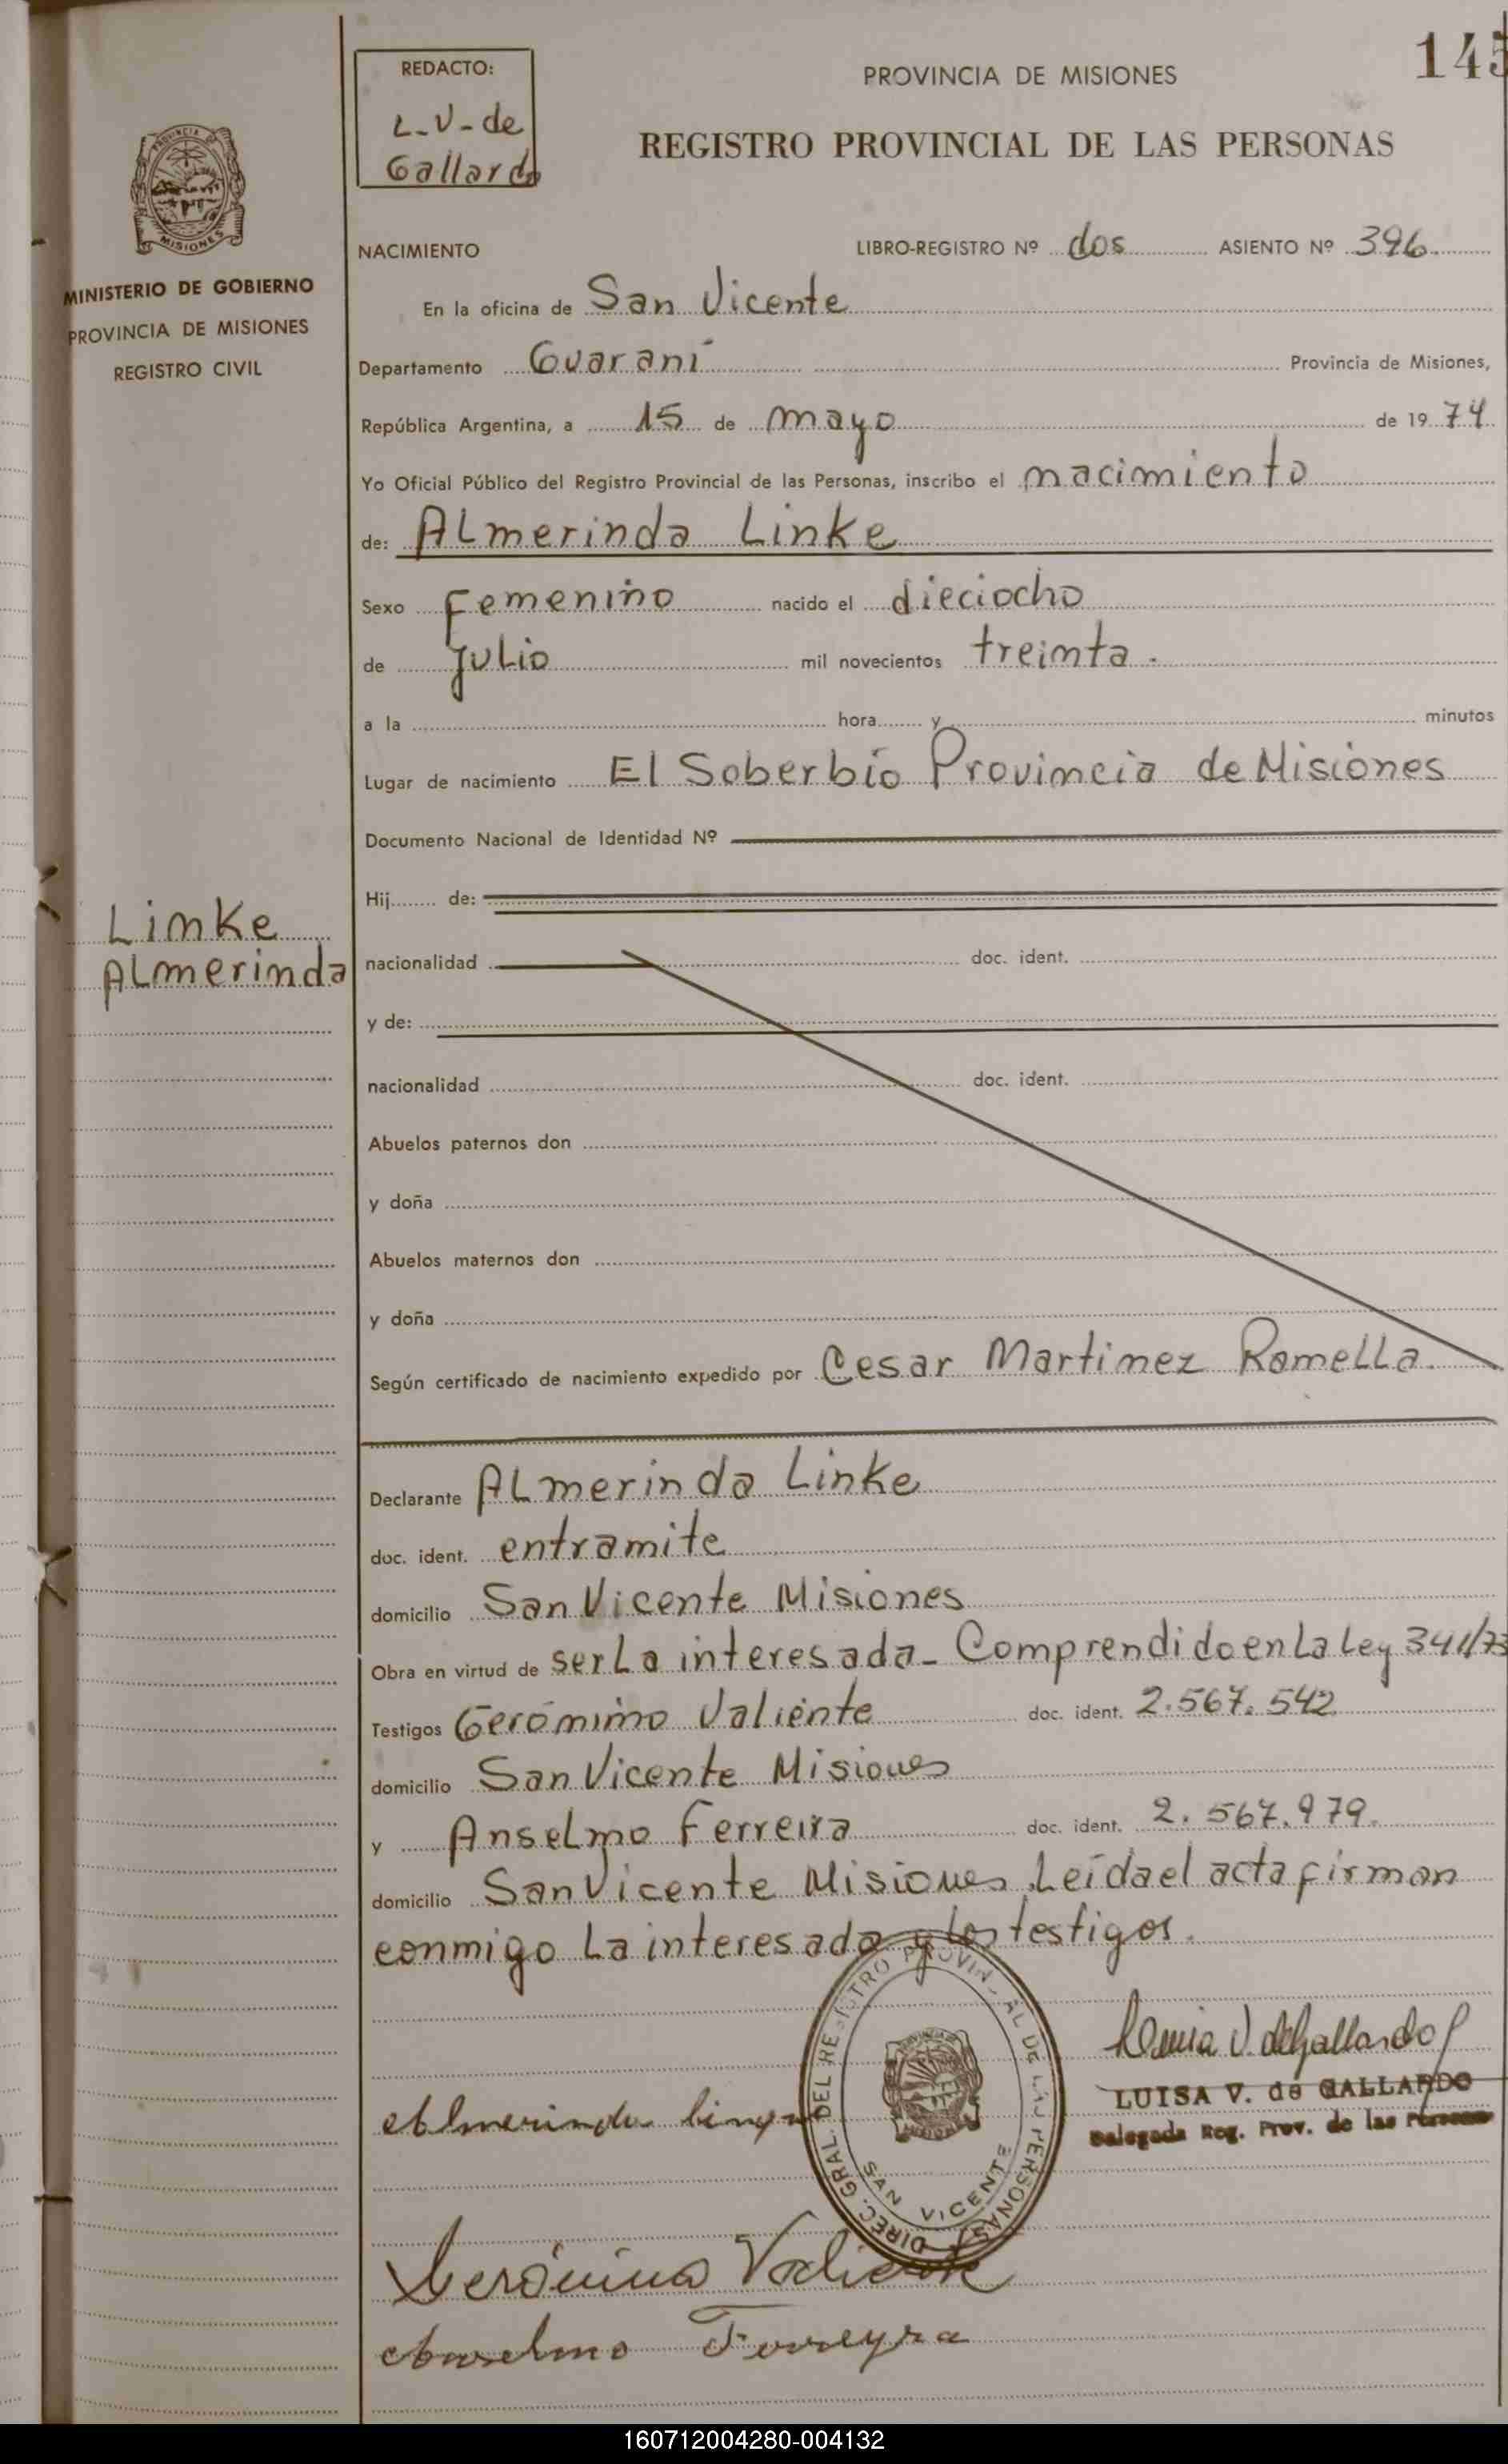 145
REDACTO:
L-V-de
Gallardo
PROVINCIA DE MISIONES
REGISTRO PROVINCIAL DE LAS PERSONAS
PROVINCIA DE
MISIONES
MINISTERIO DE GOBIERNO
PROVINCIA DE MISIONES
REGISTRO CIVIL
NACIMIENTO LIBRO-REGISTRO Nº dos ASIENTO Nº 396.
En la oficina de San Vicente
Departamento Guaraní Provincia de Misiones,
República Argentina, a 15 de mayo de 1974.
Yo Oficial Público del Registro Provincial de las Personas, inscribo el nacimiento
de: Almerinda Linke
Sexo Femenino nacido el dieciocho
de julio mil novecientos treinta.
a la hora y minutos
Lugar de nacimiento El Soberbio Provincia de Misiones
Documento Nacional de Identidad Nº
Hij de:
Linke
Almerinda
nacionalidad doc. ident.
y de:
nacionalidad doc. ident.
Abuelos paternos don
y doña
Abuelos maternos don
y doña
Según certificado de nacimiento expedido por Cesar Martinez Ramella.
Declarante Almerinda Linke
doc. ident. entramite
domicilio San Vicente Misiones
Obra en virtud de ser La interesada- Comprendido en La Ley 341/73
Testigos Gerónimo Valiente doc. ident. 2.567.542
domicilio San Vicente Misiones
y Anselmo Ferreira doc. ident. 2.567.979.
domicilio San Vicente Misiones. Leída el acta firman
conmigo La interesada y los testigos.
DIREC. GRAL. DEL REGISTRO PROVINCIAL DE LAS PERSONAS
SAN VICENTE
V. de Gallardo
LUISA V. de GALLARDO
Delegada Reg. Prov. de las Personas
Almerinda
Gerónimo Valiente
Anselmo Ferreyra
160712004280-004132